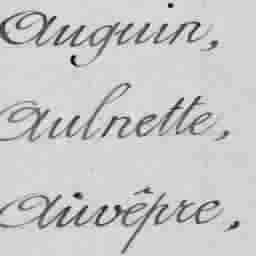 Auguin,
Aulnette,
Auvêpre,